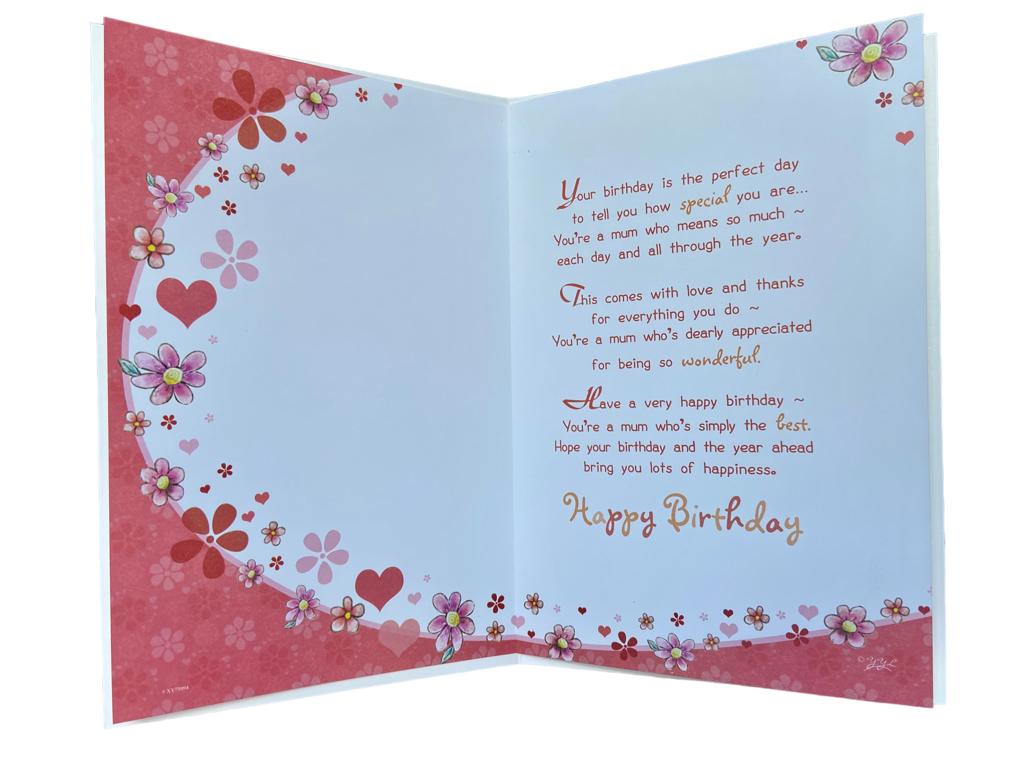 Your birthday is the perfect day
to tell you how special you are...
You're a mum who means so much ~
each day and all through the year.
This comes with love and thanks
for everything you do ~
You're a mum who's dearly appreciated
for being so wonderful.
Have a very happy birthday ~
You're a mum who's simply the best.
Hope your birthday and the year ahead
bring you lots of happiness.
Happy Birthday